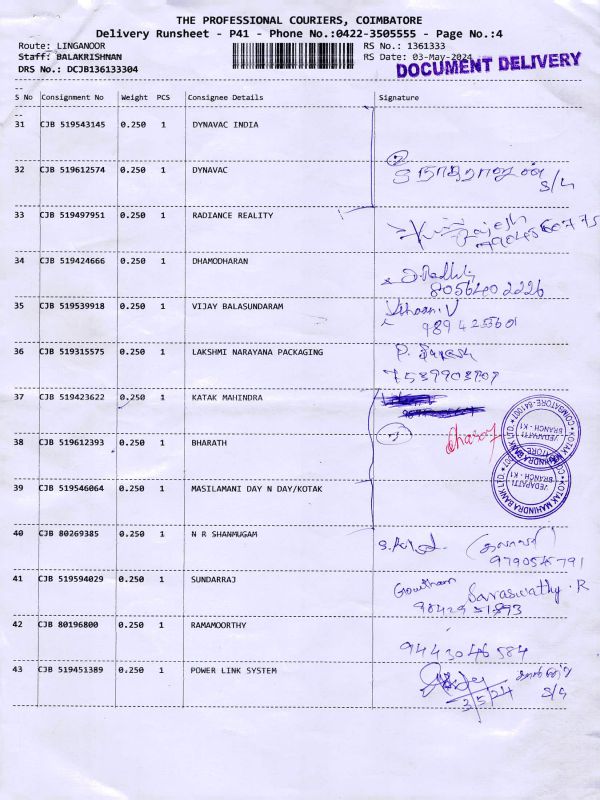 THE PROFESSIONAL COURIERS, COIMBATORE
Delivery Runsheet - P41 - Phone No.:0422-3505555 - Page No.:4
Route: LINGANOOR RS No.: 1361333
Staff: BALAKRISHNAN RS Date: 03-May-2024
DRS No.: DCJB136133304 DOCUMENT DELIVERY
S No Consignment No Weight PCS Consignee Details Signature
31 CJB 519543145 0.250 1 DYNAVAC INDIA
32 CJB 519612574 0.250 1 DYNAVAC
33 CJB 519497951 0.250 1 RADIANCE REALITY
34 CJB 519424666 0.250 1 DHAMODHARAN
8056402226
35 CJB 519539918 0.250 1 VIJAY BALASUNDARAM
36 CJB 519315575 0.250 1 LAKSHMI NARAYANA PACKAGING
37 CJB 519423622 0.250 1 KATAK MAHINDRA
38 CJB 519612393 0.250 1 BHARATH
39 CJB 519546064 0.250 1 MASILAMANI DAY N DAY/KOTAK
KOTAK MAHINDRA BANK LTD.
VEDAPATTI
BRANCH - K1
COIMBATORE-641007
40 CJB 80269385 0.250 1 N R SHANMUGAM
9790545791
41 CJB 519594029 0.250 1 SUNDARRAJ Gowtham Saraswathy.R
42 CJB 80196800 0.250 1 RAMAMOORTHY
9443046584
43 CJB 519451389 0.250 1 POWER LINK SYSTEM
3/5/24